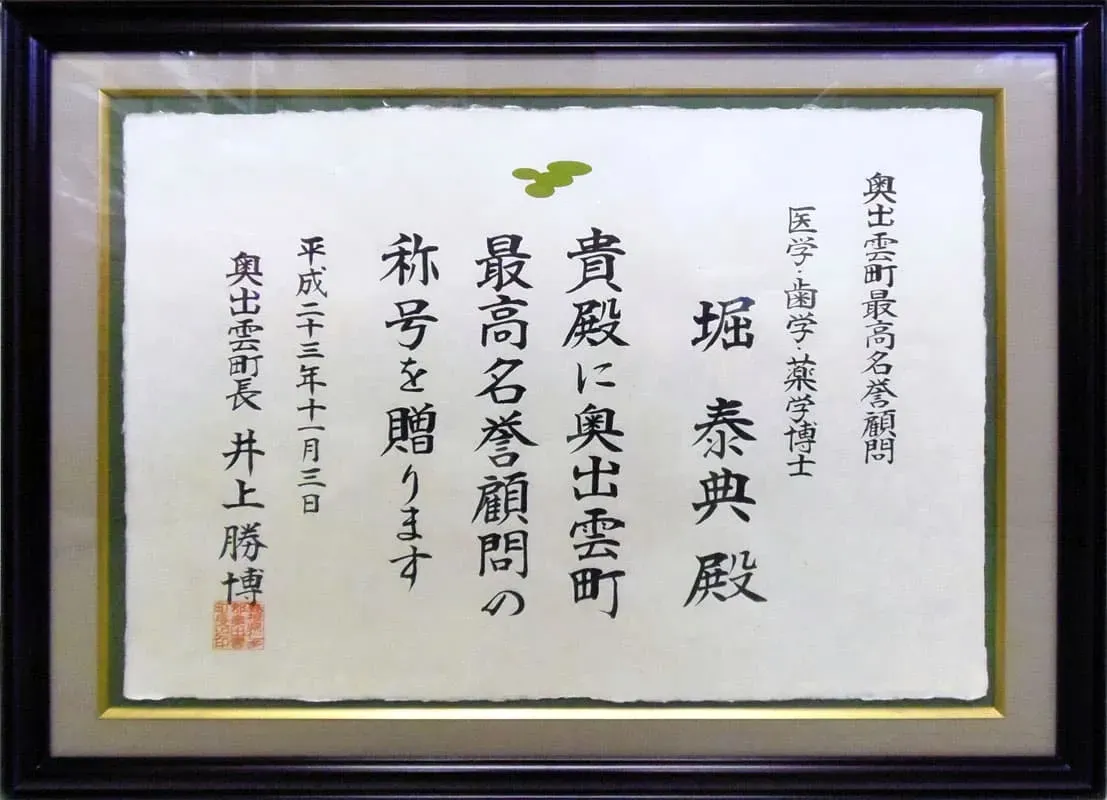 奥出雲町最高名誉顧問
医学・歯学・薬学博士
堀 泰典 殿
貴殿に奥出雲町
最高名誉顧問の
称号を贈ります
平成二十三年十一月三日
奥出雲町長 井上勝博